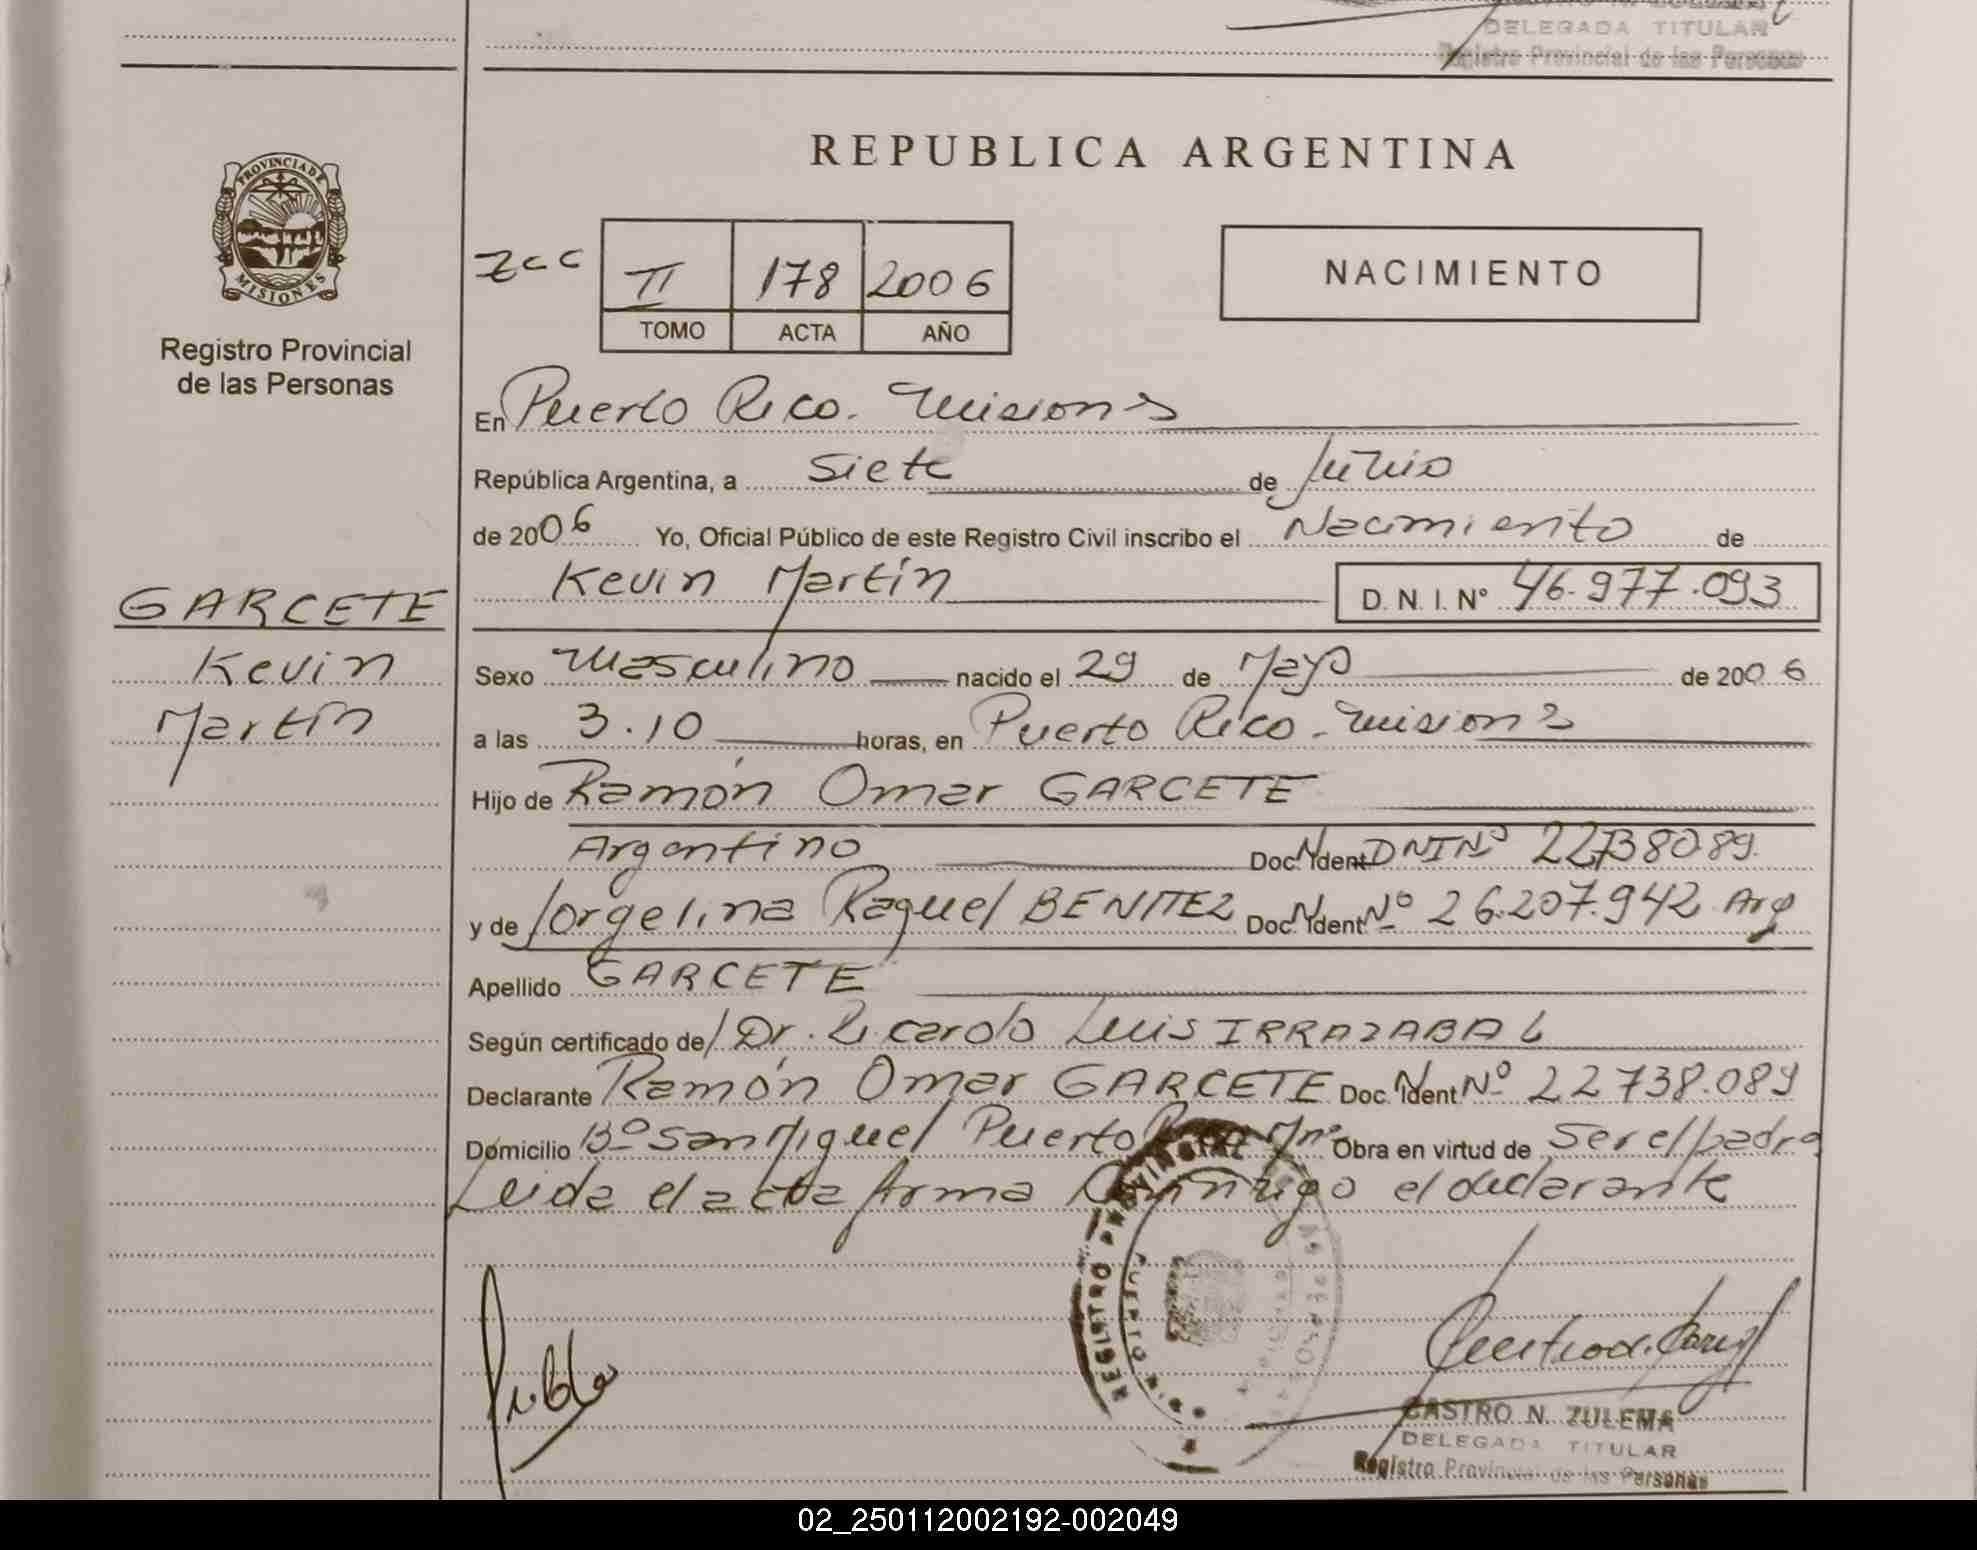 DELEGADA TITULAR
Registro Provincial de las Personas
REPUBLICA ARGENTINA
PROVINCIA DE MISIONES
Registro Provincial
de las Personas
II 178 2006
TOMO ACTA AÑO
NACIMIENTO
En Puerto Rico. Misiones
República Argentina, a Siete de Junio
de 2006 Yo, Oficial Público de este Registro Civil inscribo el Nacimiento de
Kevin Martín D.N.I. Nº 46.977.093
GARCETE
Kevin
Martín
Sexo Masculino nacido el 29 de Mayo de 2006
a las 3.10 horas, en Puerto Rico - Misiones
Hijo de Ramón Omar GARCETE
Argentino Doc. Ident. DNI Nº 22738089.
y de Jorgelina Raquel BENITEZ Doc. Ident. Nº 26.207.942 Arg
Apellido GARCETE
Según certificado de Dr. Ricardo Luis IRRAZABAL
Declarante Ramón Omar GARCETE Doc. Ident. Nº 22738.089
Domicilio Bº San Miguel Puerto Rico Mnes Obra en virtud de Ser el padre
Leida el acta firma Conmigo el declarante
REGISTRO PROVINCIAL DE LAS PERSONAS
PUERTO RICO
CASTRO N. ZULEMA
DELEGADA TITULAR
Registro Provincial de las Personas
02_250112002192-002049